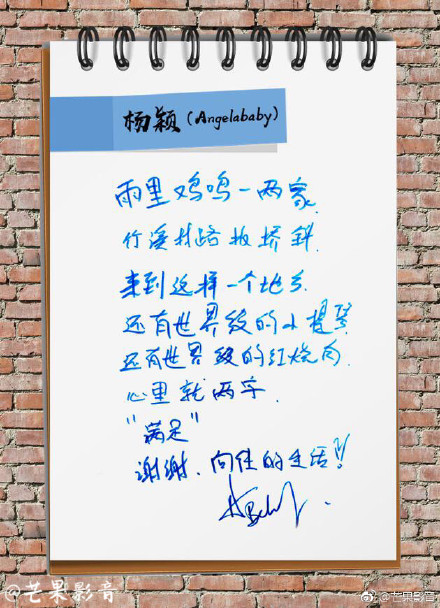 杨颖（Angelababy）
雨里鸡鸣一两家
竹溪村路板桥斜
来到这样一个地方
还有世界级的小提琴
还有世界级的红烧肉
心里就两字
“满足”
谢谢、向往的生活!!
@芒果影音
@芒果影音